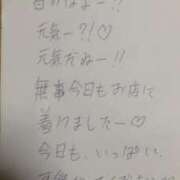 元気ー?!♡
元気だねー!!
無事今日もお店に
着りましたー♡
今日も、いっぱい、